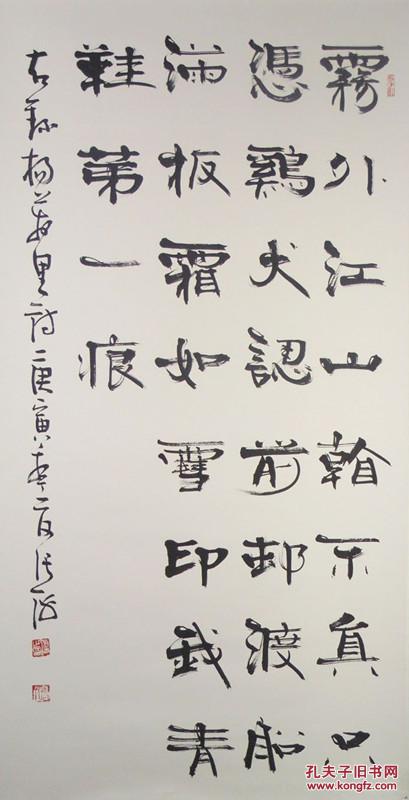 霧外江山看不真只
憑鷄犬認前邨渡船
滿板霜如雪印我青
鞋第一痕
右錄楊萬里詩庚寅春
孔夫子旧书网
www.kongfz.com